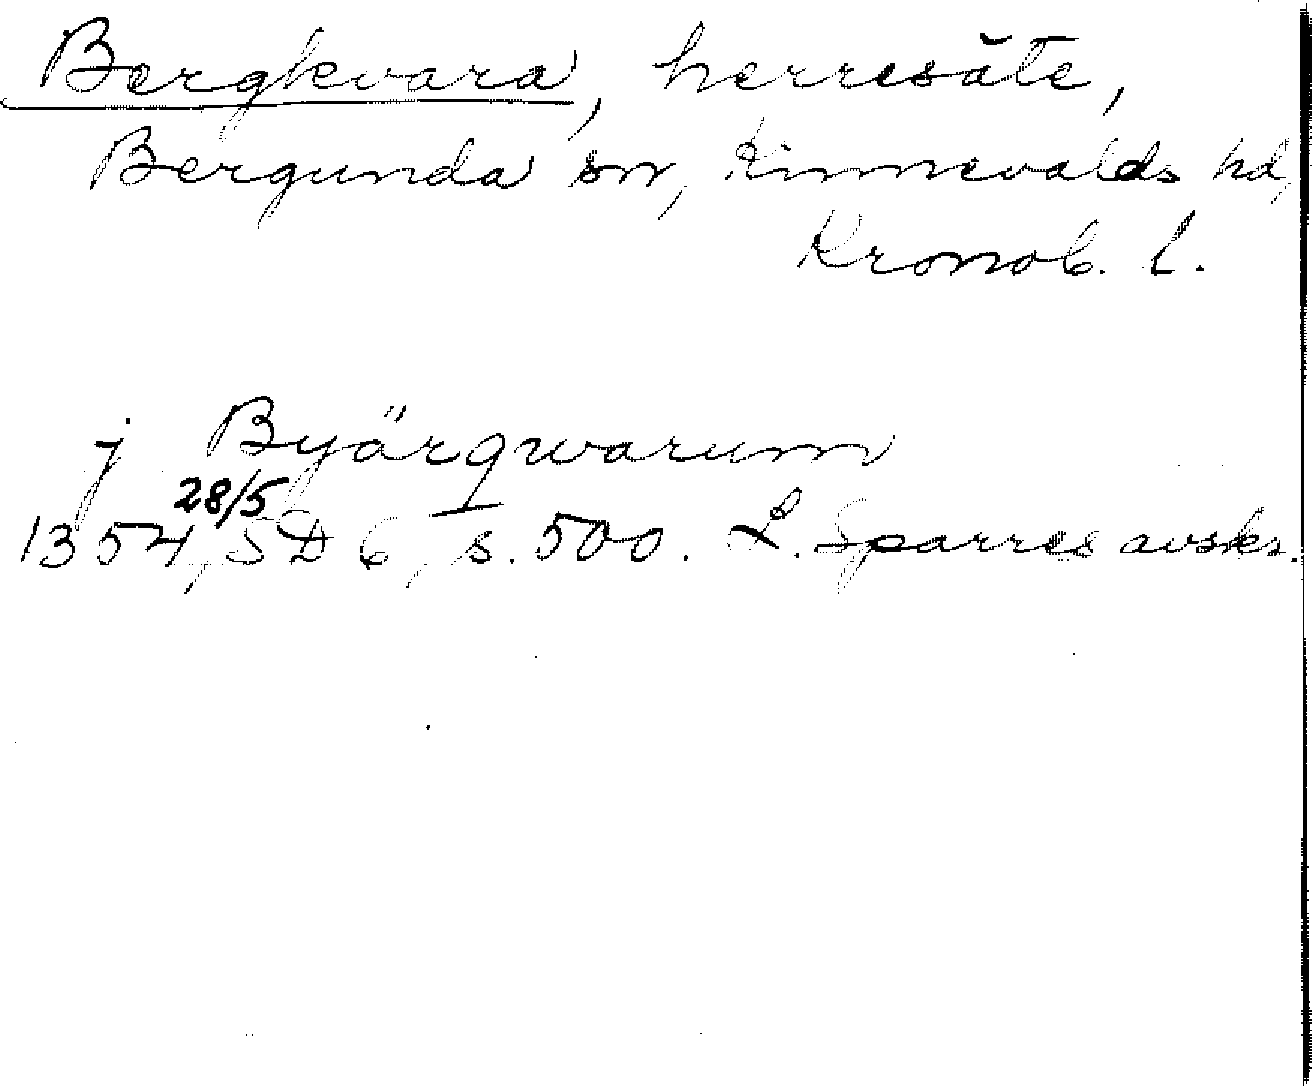 Bergkvara, herresäte,
Bergunda sn, Kinnevalds hd,
Kronob. l.
j Byärqwarum
28/5
1354, SD 6, s. 500. L. Sparres avskr.